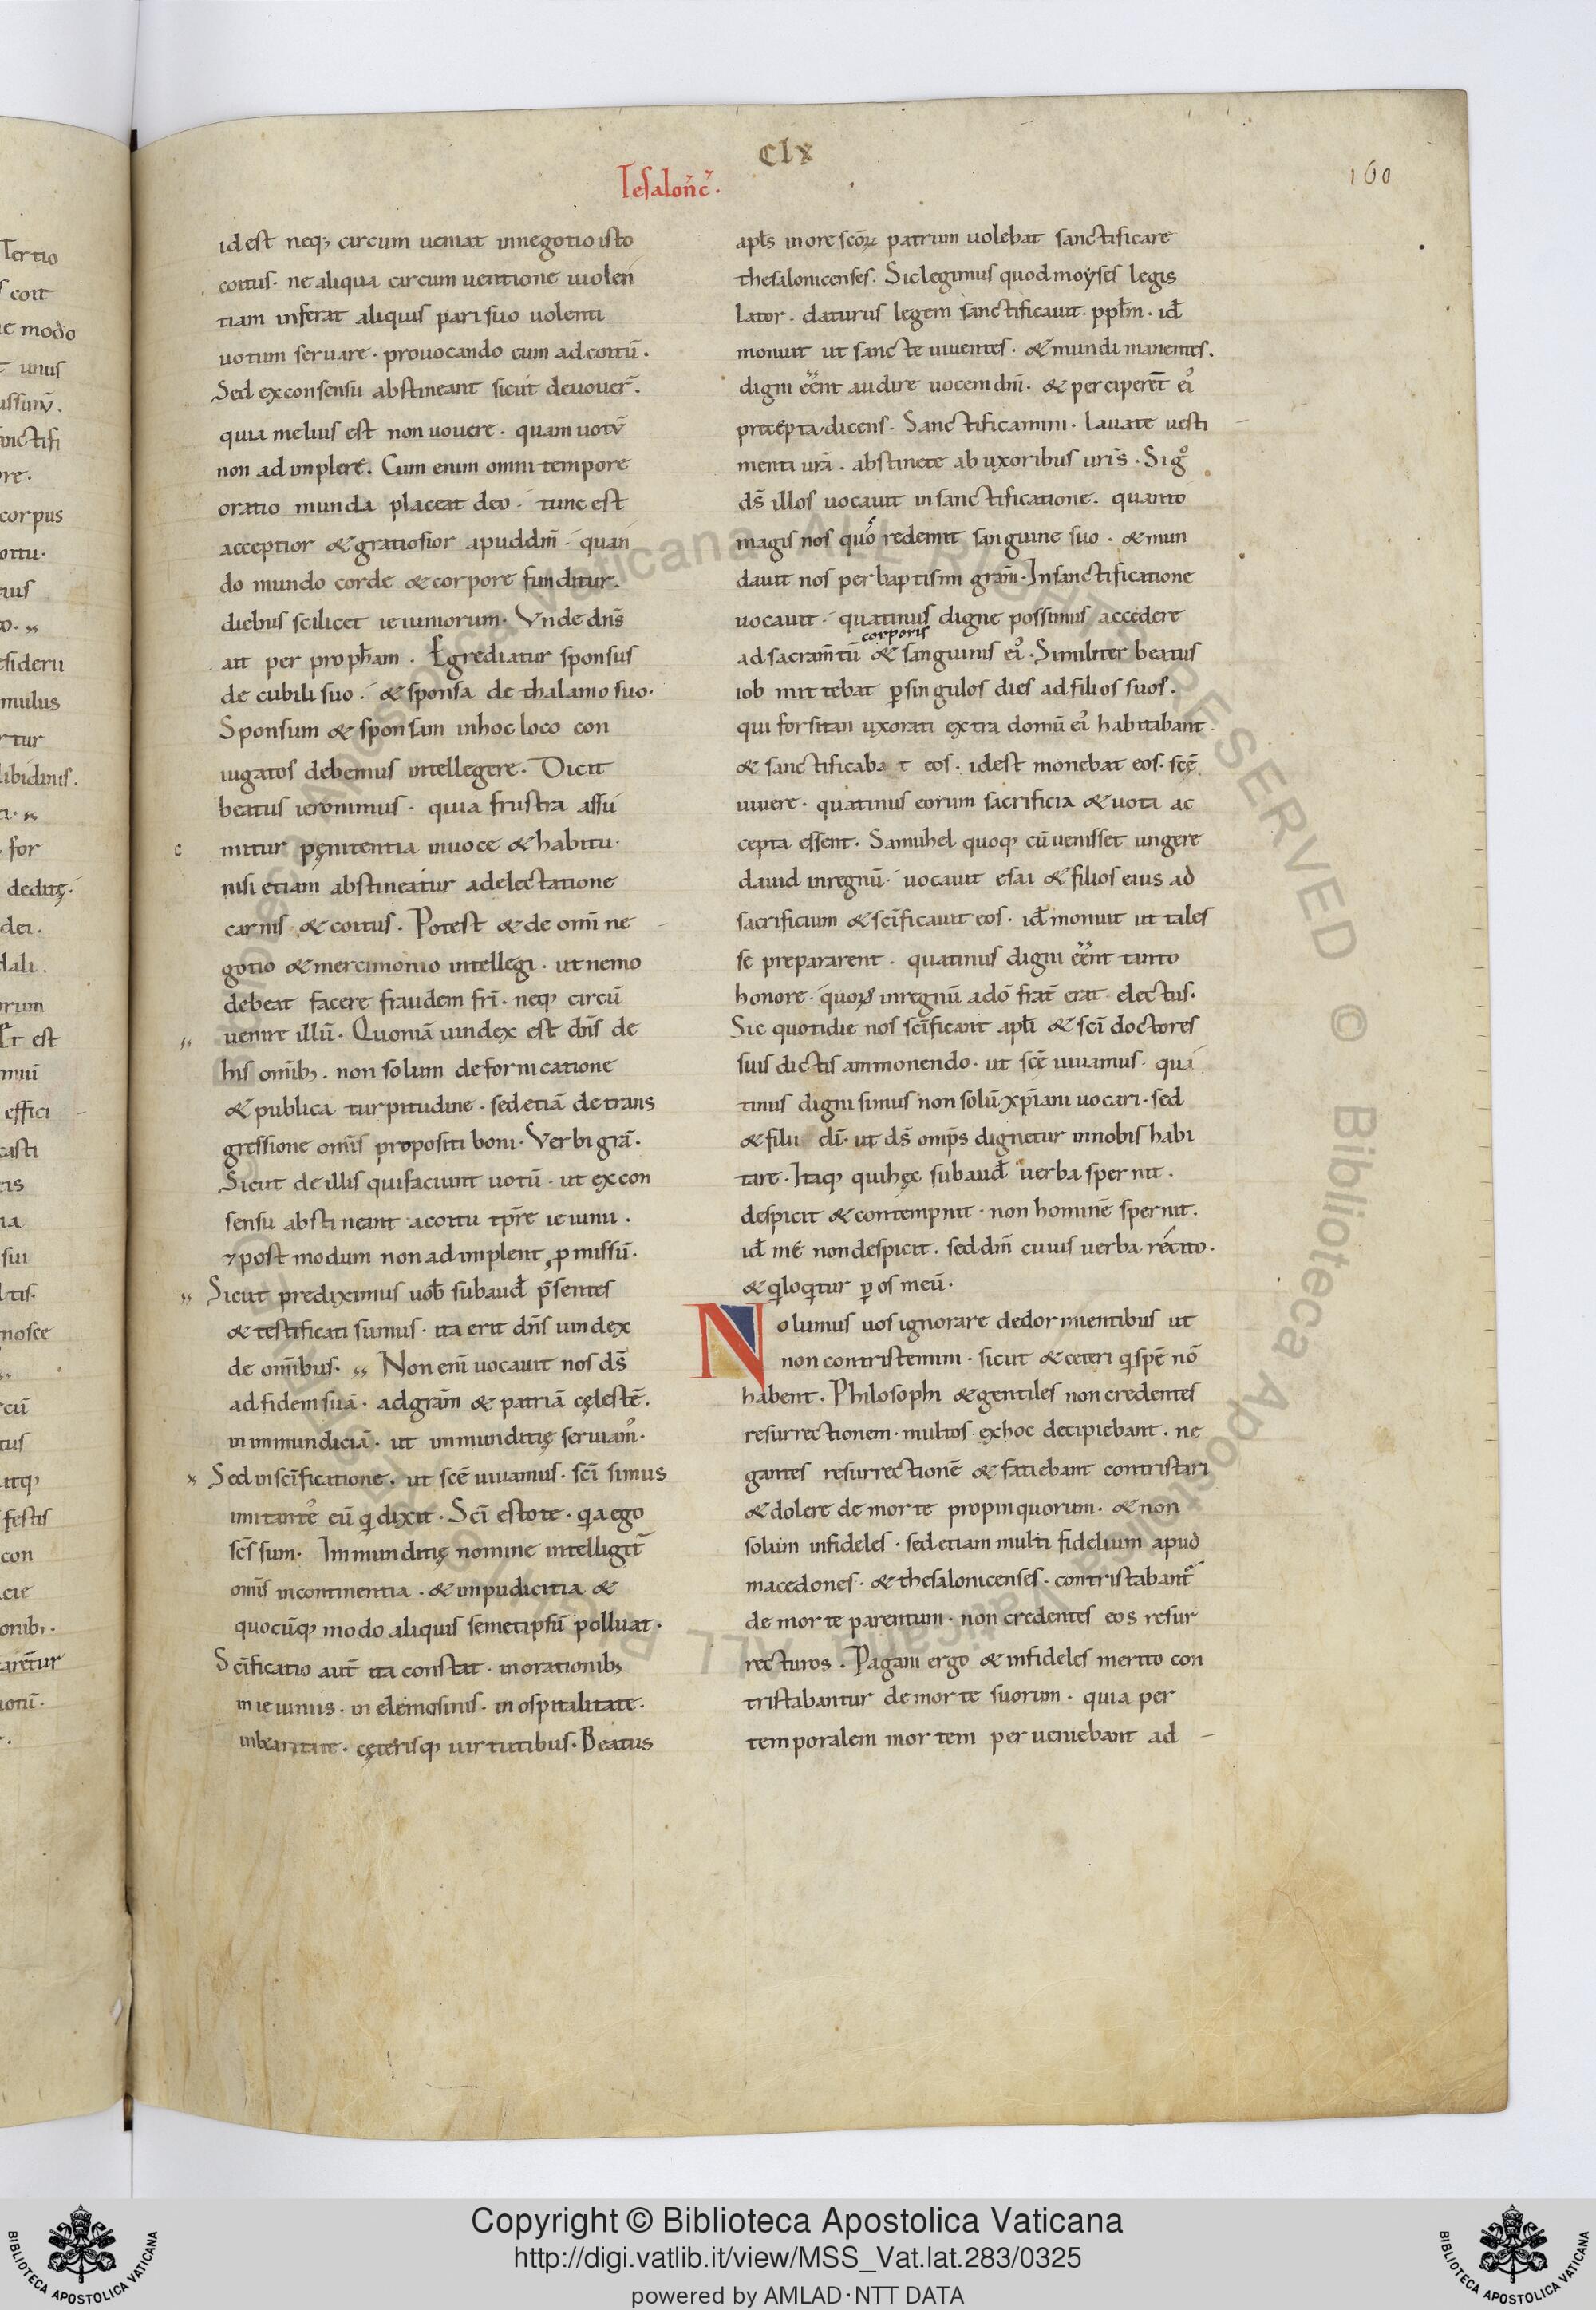 Clx
160
Tesalonc̄.
id est neq; circum ueniat innegotio isto
coitus. ne aliqua circum uentione uiolen
tiam inferat aliquis pari suo uolenti
uotum seruare. prouocando eum ad coitū.
Sed ex consensu abstineant sicut deuouer̄.
quia melius est non uouere. quam uotū
non ad implere. Cum enim omni tempore
oratio munda placeat deo. tunc est
acceptior & gratiosior apud dm̄. quan
do mundo corde & corpore funditur.
diebus scilicet ieiuniorum. Vnde dn̄s
ait per proph̄am. Egrediatur sponsus
de cubili suo. & sponsa de thalamo suo.
Sponsum & sponsam in hoc loco con
iugatos debemus intellegere. Dicit
beatus ieronimus. quia frustra assu
mitur pęnitentia in uoce & habitu.
nisi etiam abstineatur adelectatione
carnis & coitus. Potest & de omī ne
gotio & mercimonio intellegi. ut nemo
debeat facere fraudem frī. neq; circū
uenire illū. Quoniā uindex est dn̄s de
his omīb;. non solum de fornicatione
& publica turpitudine. sed etiā de trans
gressione omīs propositi boni. Verbi grā.
Sicut de illis qui faciunt uotū. ut ex con
sensu abstineant a coitu tp̄re ieiunii.
⁊ post modum non ad implent ꝓmissū.
Sicut prediximus uob̄ subaud̄ p̄sentes
& testificati sumus. ita erit dn̄s uindex
de omībus. Non enī uocauit nos ds̄
ad fidem suā. ad gram̄ & patriā cęlestē.
in immundiciā. ut immunditię seruiam᾿.
Sed in scīficatione. ut scē uiuamus. scī simus
imitante᾿ eū qi dixit. Scī estote. qia ego
scs̄ sum. Immunditię nomine intelligit᾿
omīs incontinentia. & inpudicitia &
quocūq; modo aliquis semetipsū polluat.
Scīficatio aut̄ ita constat. in orationib;
in ieiuniis. in elemosinis. in ospitalitate.
in bearitate. cęterisq; uirtutibus. Beatus
apl̄s in ore scōꝝ patrum uolebat sanctificare
thesalonicenses. Sic legimus quod moẏses legis
lator. daturus legem sanctificauit ppl̄m. id̄
monuit ut sancte uiuentes. & mundi manentes.
digni eēnt audire uocem dnī. & perciperēt ei᾿
precepta dicens. Sanctificamini. lauate uesti
menta urā. abstinete ab uxoribus urīs. Si gͦ
ds̄ illos uocauit in sanctificatione. quanto
magis nos quos redemit sanguine suo. & mun
dauit nos per baptismi gram̄. In sanctificatione
uocauit. quatinus digne possimus accedere
corporis
ad sacram̄tū & sanguinis ei᾿. Similiter beatus
iob mittebat ꝑsingulos dies ad filios suos.
qui forsitan uxorati extra domū ei᾿ habitabant.
& sanctificabat eos. id est monebat eos. scē
uiuere. quatinus eorum sacrificia & uota ac
cepta essent. Samuhel quoq; cū uenisset ungere
dauid inregnū. uocauit esai & filios eius ad
sacrificium & scīficauit eos. id̄ monuit ut tales
se prepararent. quatinus digni eēnt tanto
honore. quoꝝ inregnū adō frat̄ erat electus.
Sic quotidie nos scīficant apl̄i & scī doctores
suis dictis ammonendo. ut scē uiuamus. qua
tinus digni simus non solū xp̄iani uocari. sed
& filii dī. ut ds̄ omp̄s dignetur in nobis habi
tare. Itaq; qui hęc subaud̄ uerba spernit.
despicit & contempnit. non hominē spernit.
id̄ mé non despicit. sed dm̄ cuius uerba recito.
& qi loqitur ꝑ os meū.
Nolumus uos ignorare de dormientibus ut
non contristemini. sicut & ceteri qi spē nō
habent. Philosophi & gentiles non credentes
resurrectionem. multos ex hoc decipiebant. ne
gantes resurrectionē & fatiebant contristari
& dolere de morte propinquorum. & non
solum infideles. sed etiam multi fidelium apud
macedones. & thesalonicenses. contristabant᾿
de morte parentum. non credentes eos resur
recturos. Pagani ergo & infideles merito con
tristabantur de morte suorum. quia per
temporalem mortem perueniebant ad
Copyright © Biblioteca Apostolica Vaticana
http://digi.vatlib.it/view/MSS_Vat.lat.283/0325
powered by AMLAD·NTT DATA